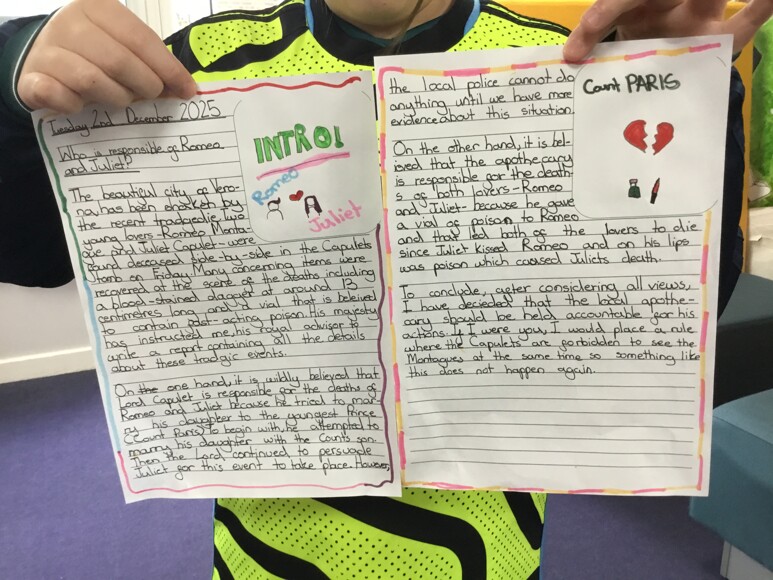 Tuesday 2nd December 2025
Who is responsible of Romeo
and Juliet?
INTRO!
Romeo
Juliet
The beautiful city of Vero-
na, has been shaken by
the recent tradgedie. Two
young lovers-Romeo Monta-
gue and Juliet Capulet-were
found deceased side-by-side in the Capulets
tomb on Friday. Many concerning items were
recovered at the scene of the deaths including
a blood-stained dagger of around 13
centimetres long and a vial that is beleived
to contain fast-acting poison. His majesty
has instructed me, his royal advisor to
write a report containing all the details
about these tradgic events.
On the one hand, it is wildly believed that
Lord Capulet is responsible for the deaths of
Romeo and Juliet because he tried to mar-
ry his daughter to the youngest Prince
(Count Paris). To begin with, he attempted to
marry his daughter with the Counts son.
Then the Lord continued to persuade
Juliet for this event to take place. However,
the local police cannot do
anything until we have more
evidence about this situation.
Count PARIS
On the other hand, it is bel-
ieved that the apothecary
is responsible for the death-
s of both lovers-Romeo
and Juliet-because he gave
a vial of poison to Romeo
and that led both of the lovers to die
since Juliet kissed Romeo and on his lips
was poison which caused Juliets death.
To conclude, after considering all views,
I have decieded that the local apothe-
cary should be held accountable for his
actions. If I were you, I would place a rule
where the Capulets are forbidden to see the
Montagues at the same time so something like
this does not happen again.